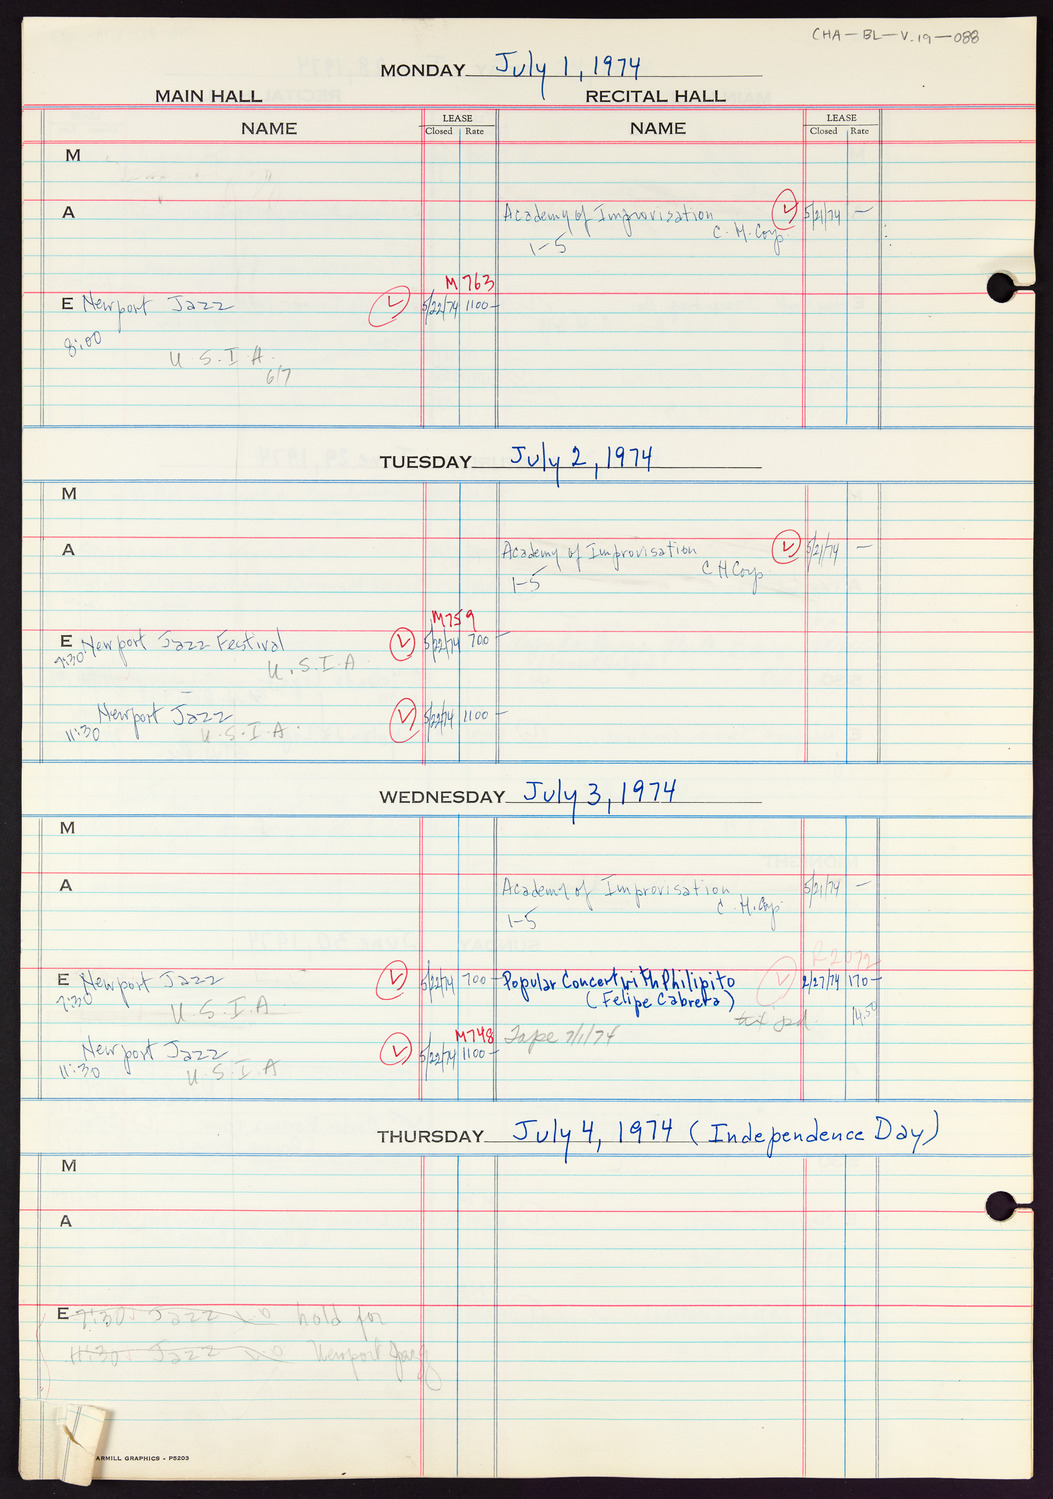 CHA-BL-V.19-088
MONDAY July 1, 1974
MAIN HALL RECITAL HALL
NAME LEASE Closed Rate NAME LEASE Closed Rate
M
A Academy of Improvisation 5/21/74 —
C. H. Corp
1-5
M763
E Newport Jazz 5/22/74 1100-
8:00
U.S.I.A.
6/7
TUESDAY July 2, 1974
M
A Academy of Improvisation 5/21/74 —
C H Corp
1-5
M759
E Newport Jazz Festival 5/22/74 700-
7:30 U.S.I.A
Newport Jazz 5/22/74 1100-
11:30 U.S.I.A.
WEDNESDAY July 3, 1974
M
A Academy of Improvisation 5/21/74 —
C. H. Corp
1-5
R2072
E Newport Jazz 5/22/74 700- Popular Concert with Philipito 2/27/74 170-
7:30 (Felipe Cabrera)
U.S.I.A 14.50
M748 Tape 7/1/74
Newport Jazz 5/22/74 1100-
11:30 U.S.I.A
THURSDAY July 4, 1974 (Independence Day)
M
A
E 7:30 Jazz hold for
11:30 Jazz Newport Jazz
ARMILL GRAPHICS - P5203